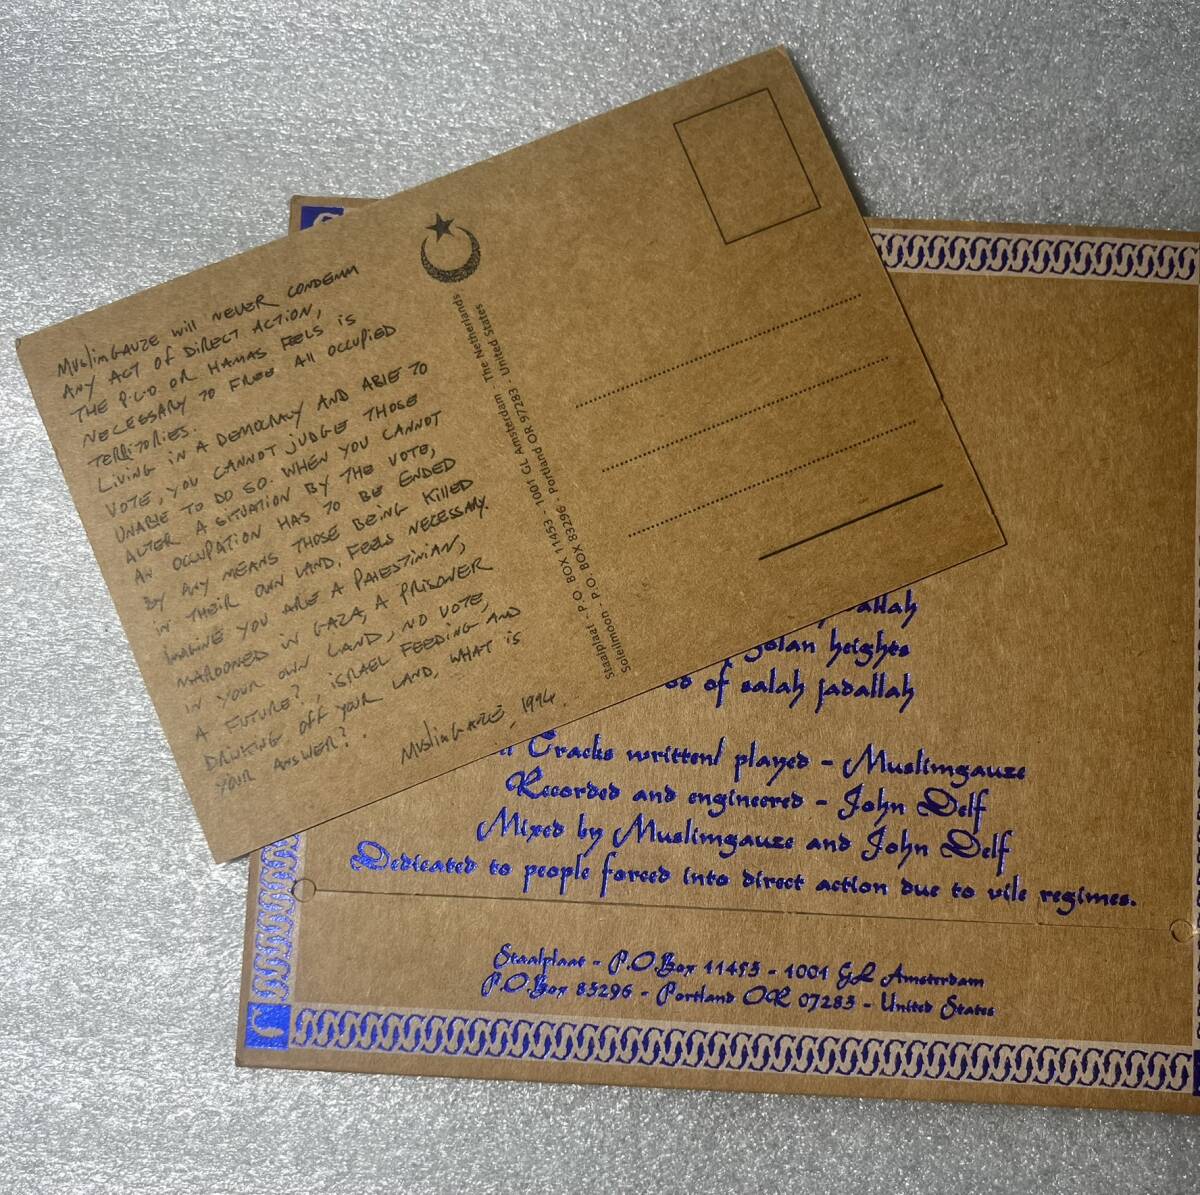 MuslimGauze will never condemm
any act of direct action,
the P.L.O or Hamas feels is
necessary to free all occupied
territories.
Living in a democracy and able to
vote, you cannot judge those
unable to do so. When you cannot
alter a situation by the vote,
an occupation has to be ended
by any means those being killed
in their own land, feels necessary.
Imagine you are a Palestinian,
marooned in Gaza, a prisoner
in your own land, no vote,
a future?, Israel feeding and
driving off your land, what is
your answer?.
MuslimGauze, 1994.
Staalplaat - P.O. BOX 11453 - 1001 GL Amsterdam - The Netherlands
Soleilmoon - P.O. BOX 83296 - Portland OR 97283 - United States
golan heights
of salah jadallah
Tracks written/ played - Muslimgauze
Recorded and engineered - John Delf
Mixed by Muslimgauze and John Delf
Dedicated to people forced into direct action due to vile regimes.
Staalplaat - P.O.Box 11453 - 1001 GL Amsterdam
P.O.Box 83296 - Portland OR 07283 - United States